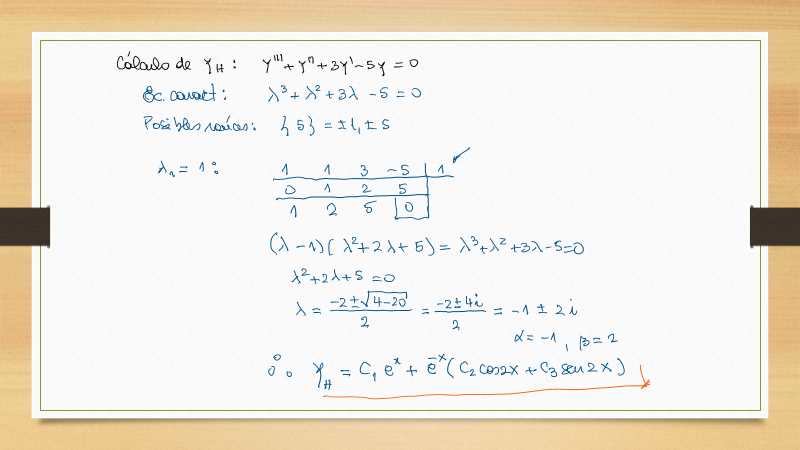 Cálculo de y_H : y''' + y'' + 3y' - 5y = 0
Ec. caract: λ³ + λ² + 3λ - 5 = 0
Posibles raíces: {5} = ±1, ±5
λ₁ = 1 :
1 1 3 -5 | 1 ✓
0 1 2 5
1 2 5 |0|
(λ - 1)(λ² + 2λ + 5) = λ³ + λ² + 3λ - 5 = 0
λ² + 2λ + 5 = 0
λ = (-2 ± √(4-20))/2 = (-2 ± 4i)/2 = -1 ± 2i
α = -1 , β = 2
∴ y_H = C₁ eˣ + e⁻ˣ (C₂ cos2x + C₃ sen2x)